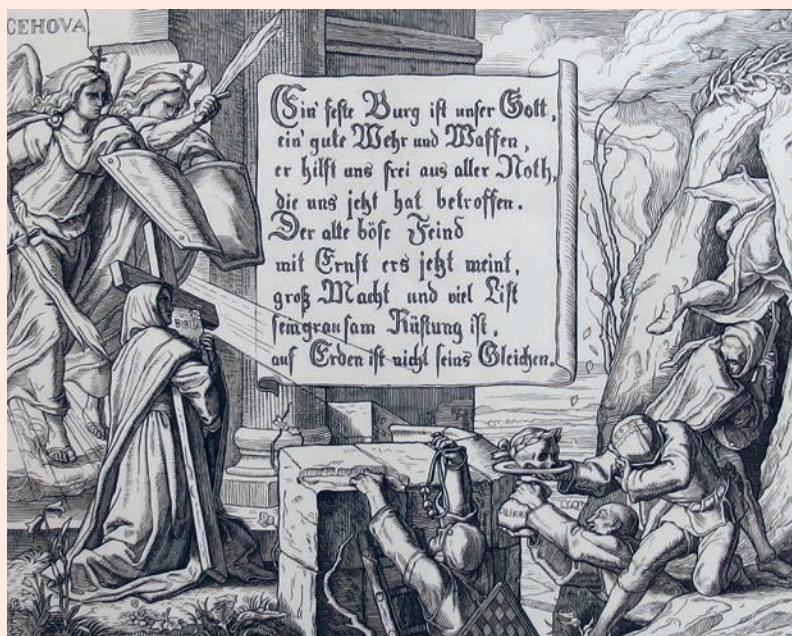 CEHOVA
Ein' feste Burg ist unser Gott,
ein' gute Wehr und Waffen,
er hilft uns frei aus aller Noth,
die uns jetzt hat betroffen.
Der alte böse Feind
mit Ernst ers jetzt meint,
groß Macht und viel List
sein grausam Rüstung ist,
auf Erden ist nicht seins Gleichen.
BIBEL